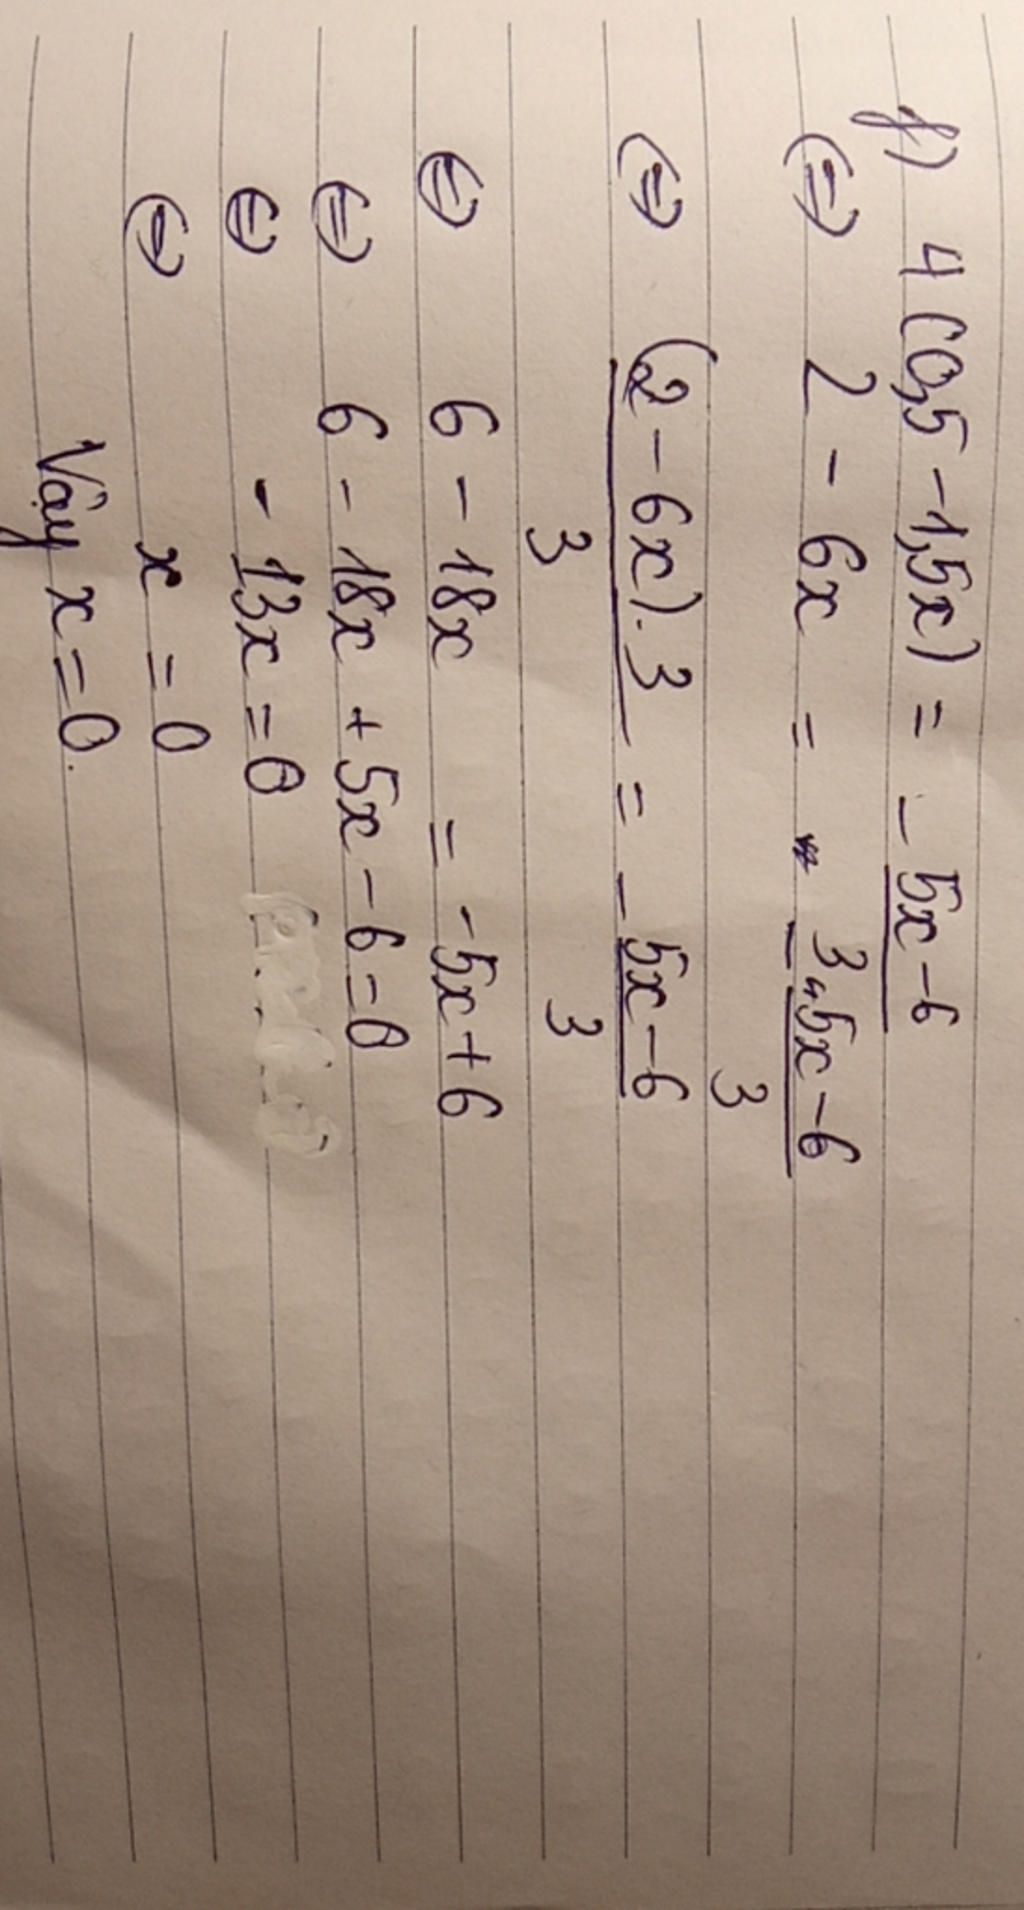 f) 4(0,5 - 1,5x) = - 5x - 6
3
(=) 2 - 6x = - 5x - 6
3
(=) (2 - 6x).3 = - 5x - 6
3 3
(=) 6 - 18x = -5x + 6
(=) 6 - 18x + 5x - 6 = 0
(=) - 13x = 0
(=) x = 0
Vậy x = 0.